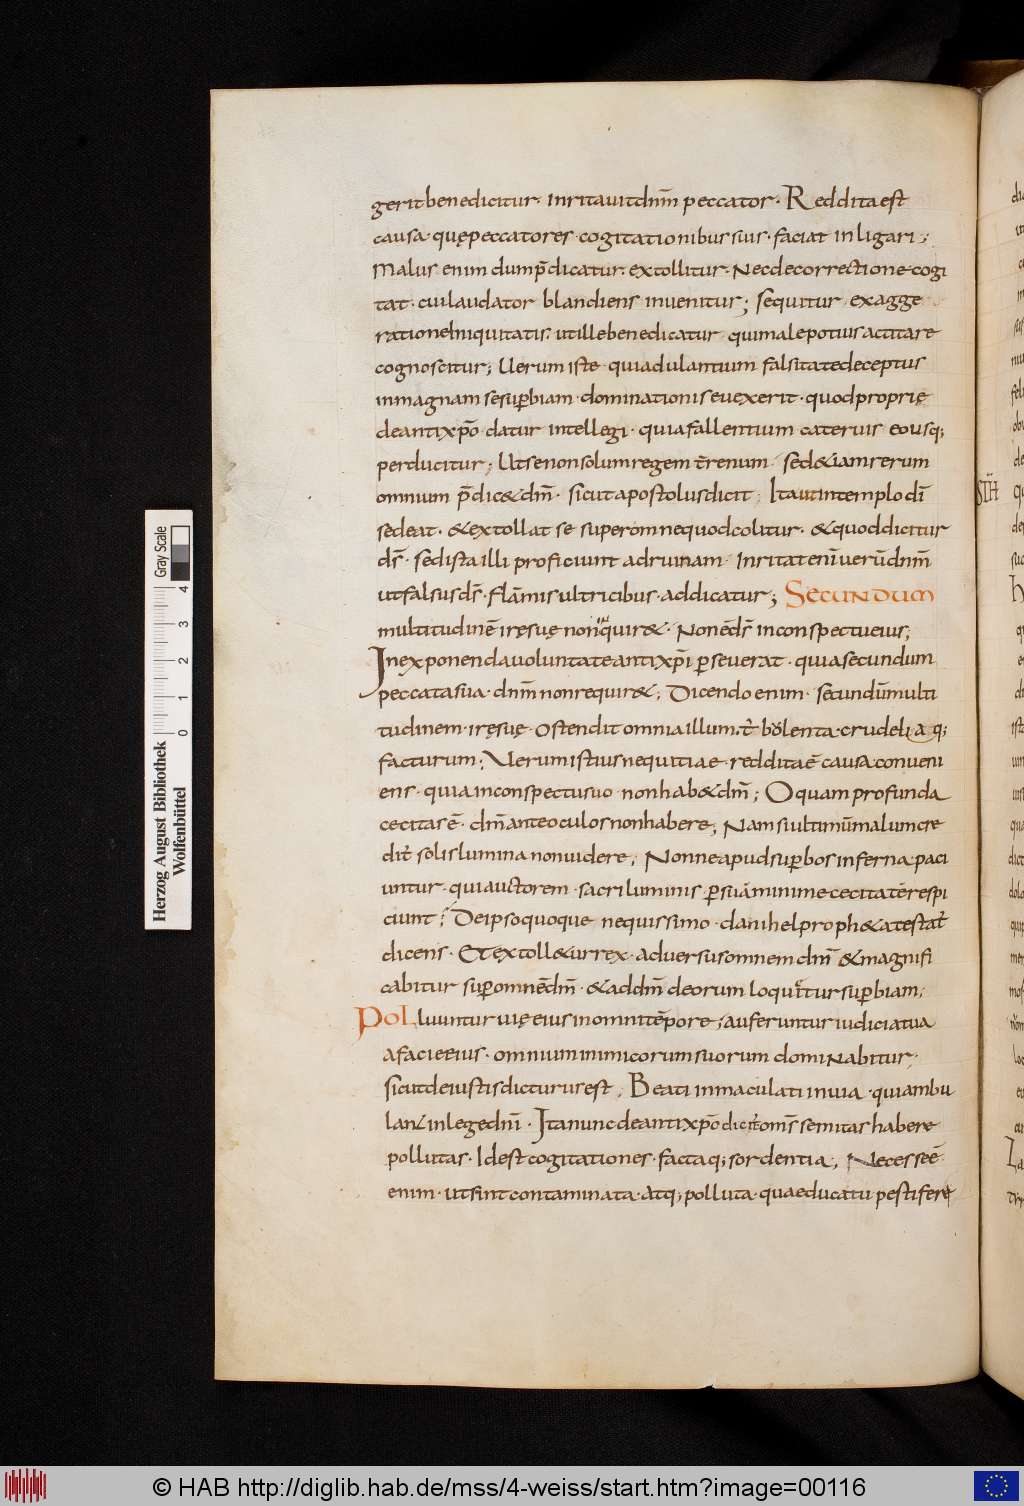 gerit benedicitur· Inritauit dnm̄ peccator· Reddita est
causa· quę peccatores· cogitationibus suis· faciat inligari;
Malus enim dum p̄dicatur· extollitur· Nec de correctione cogi
tat· cui laudator blandiens inuenitur; sequitur· exagge
ratione iniquitatis· ut ille benedicatur qui male potius actitare
cognoscitur; Uerum iste quia dulantium falsitate deceptus
in magnam se supbiam· dominationis euexerit· quod proprię
de antixp̄o datur intellegi· quia fallentium cateruis eo usq;
perducitur; Ut se non solum regem t̄renum sed & iam rerum
omnium p̄dic& dm̄· sicut apostolus dicit; Ita ut in templo dī
sedeat· & extollat se super omne quod colitur· & quod dicitur
ds̄· sed ista illi proficiunt ad ruinam· Inritat enī uerū dnm̄
ut falsus ds̄· flāmis ultricibus addicatur; Secundum
multitudinē irę suę non quir&· Non ē ds̄ in conspectu eius;
In exponenda uoluntate antixp̄i pseuerat· quia secundum
peccata sua· dnm̄ non requir&; Dicendo enim· secundū multi
tudinem· irę suę· ostendit omnia illum· t̄ uiolenta· crudeliaq;
facturum; Uerum istius nequitiae· reddita ē causa conueni
ens· quia in conspectu suo non hab& dm̄; O quam profunda
cecitas ē· dm̄ ante oculos non habere; Nam si ultimū malum cre
dit̄ solis lumina non uidere; Nonne apud supbos inferna paci
untur· qui auctorem· sacri luminis· p suā minime cecitatē respi
ciunt; De ipso quoque nequissimo· danihel proph&a testat̄
dicens· Et extoll&ur rex· aduersus omnem dm̄ & magnifi
cabitur sup omnē dm̄· & ad dm̄ deorum loquit̄ur supbiam;
Polluuntur uię eius in omni tēpore; auferuntur iudicia tua
a facie eius· omnium inimicorum suorum dominabitur·
sicut de iustis dicturus est; Beati inmaculati in uia· qui ambu
lant in lege dnī· Ita nunc de antixp̄o dicit̄ om̄s semitas habere
pollutas· Id est cogitationes· factaq; sordentia; Necesse ē
enim· ut sint contaminata· atq; polluta· quae ducatu pestiferę
Herzog August Bibliothek
Wolfenbüttel
0 1 2 3 4
Gray Scale
© HAB http://diglib.hab.de/mss/4-weiss/start.htm?image=00116